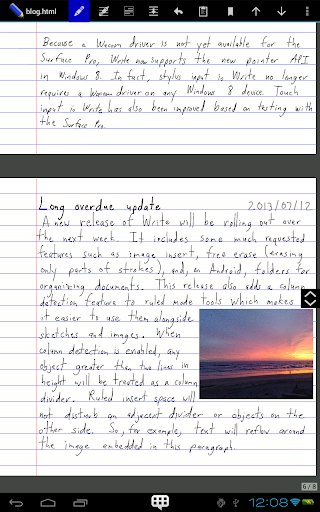 blog.html
Because a Wacom driver is not yet available for the
Surface Pro, Write now supports the new pointer API
in Windows 8. In fact, stylus input in Write no longer
requires a Wacom driver on any Windows 8 device. Touch
input in Write has also been improved based on testing with
the Surface Pro.
Long overdue update 2013/07/12
A new release of Write will be rolling out over
the next week. It includes some much requested
features such as image insert, free erase (erasing
only parts of strokes), and, on Android, folders for
organizing documents. This release also adds a column
detection feature to ruled mode tools which makes
it easier to use them alongside
sketches and images. When
column detection is enabled, any
object greater than two lines in
height will be treated as a column
divider. Ruled insert space will
not disturb an adjacent divider or objects on the
other side. So, for example, text will reflow around
the image embedded in this paragraph.
6/8
12:08